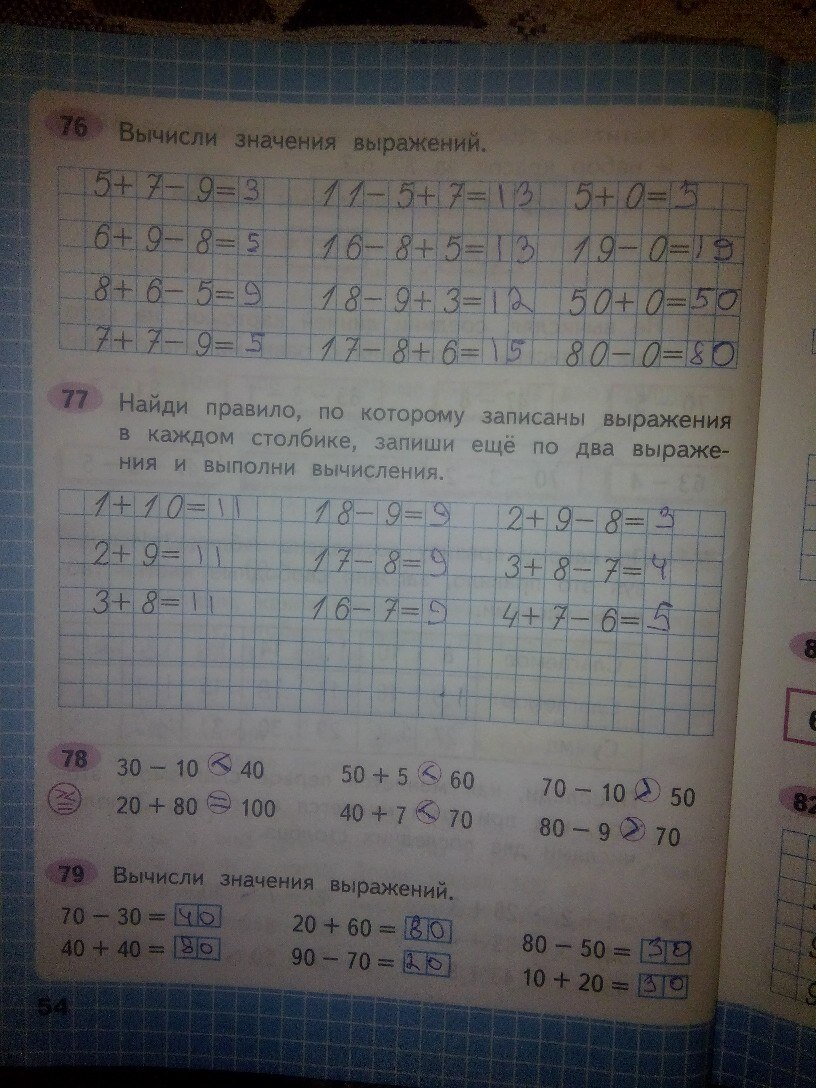 76 Вычисли значения выражений.
5+7−9=3 11−5+7=13 5+0=5
6+9−8=5 16−8+5=13 19−0=19
8+6−5=9 18−9+3=12 50+0=50
7+7−9=5 17−8+6=15 80−0=80
77 Найди правило, по которому записаны выражения
в каждом столбике, запиши ещё по два выраже-
ния и выполни вычисления.
1+10=11 18−9=9 2+9−8=3
2+9=11 17−8=9 3+8−7=4
3+8=11 16−7=9 4+7−6=5
78 30 − 10 < 40 50 + 5 < 60 70 − 10 > 50
20 + 80 = 100 40 + 7 < 70 80 − 9 > 70
79 Вычисли значения выражений.
70 − 30 = 40 20 + 60 = 80 80 − 50 = 30
40 + 40 = 80 90 − 70 = 20 10 + 20 = 30
54
82